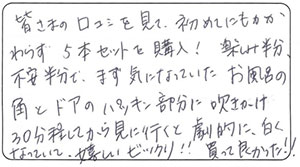 皆さまの口コミを見て、初めてにもかか
わらず5本セットを購入! 楽しみ半分、
不安半分で、まず気になっていたお風呂の
角とドアのパッキン部分に吹きかけ
30分程してから見に行くと劇的に、白く
なっていて、嬉しいビックリ!! 買って良かった!